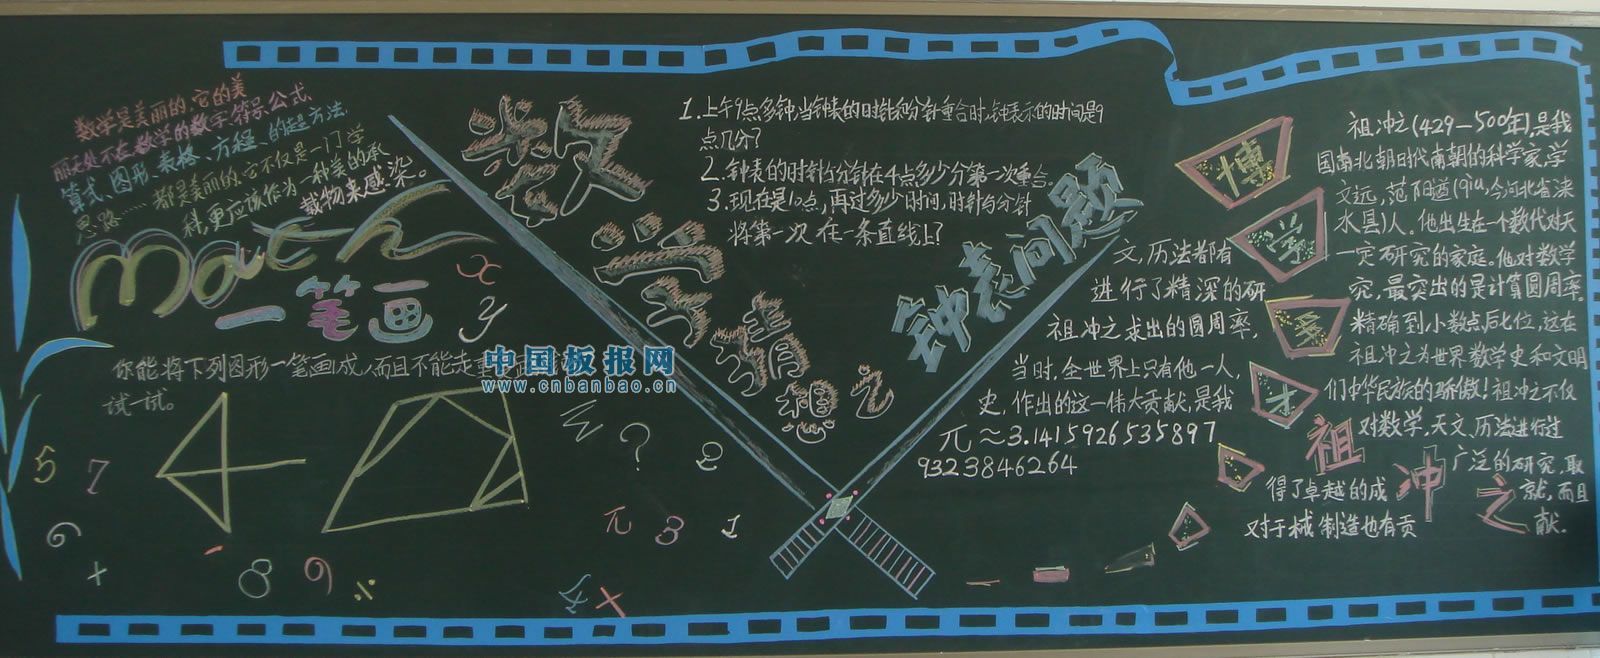 数学是美丽的、它的美
丽无处不在,数学的数字、符号、公式、
算式、图形、表格、方程、的起方法、
思路……都是美丽的、它不仅是一门学
科,更应该作为一种美的承
载物来感染。
Math
一笔画
你能将下列图形一笔画成,而且不能走重
试一试。
中国板报网
www.cnbanbao.cn
5 7 6 + - 8 9 ÷
x y ? 2 π 3 1 ×
数学
之
1.上午9点多钟,当钟表的时针和分针重合时,钟表示的时间是9
点几分?
2.钟表的时针与分针在4点多少分第一次重合.
3.现在是10点,再过多少时间,时针与分针
将第一次在一条直线上?
钟表问题
博学多才
祖冲之(429—500年),是我
国南北朝时代南朝的科学家,字
文远,范阳遒(qiu,今河北省涞
水县)人。他出生在一个数代对天
文,历法都有 一定研究的家庭。他对数学
进行了精深的研 究,最突出的是计算圆周率。
祖冲之求出的圆周率, 精确到小数点后七位,这在
当时,全世界上只有他一人, 祖冲之为世界数学史和文明
史,作出的这一伟大贡献,是我 们中华民族的骄傲!祖冲之不仅
对数学,天文、历法进行过
广泛的研究,取
得了卓越的成 就,而且
对于械制造也有贡 献.
π≈3.1415926535897
9323846264
祖冲之